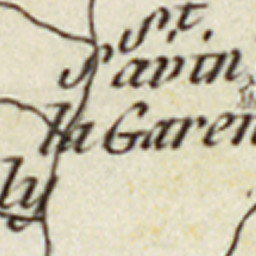 St.
Savin
la Garen
ly